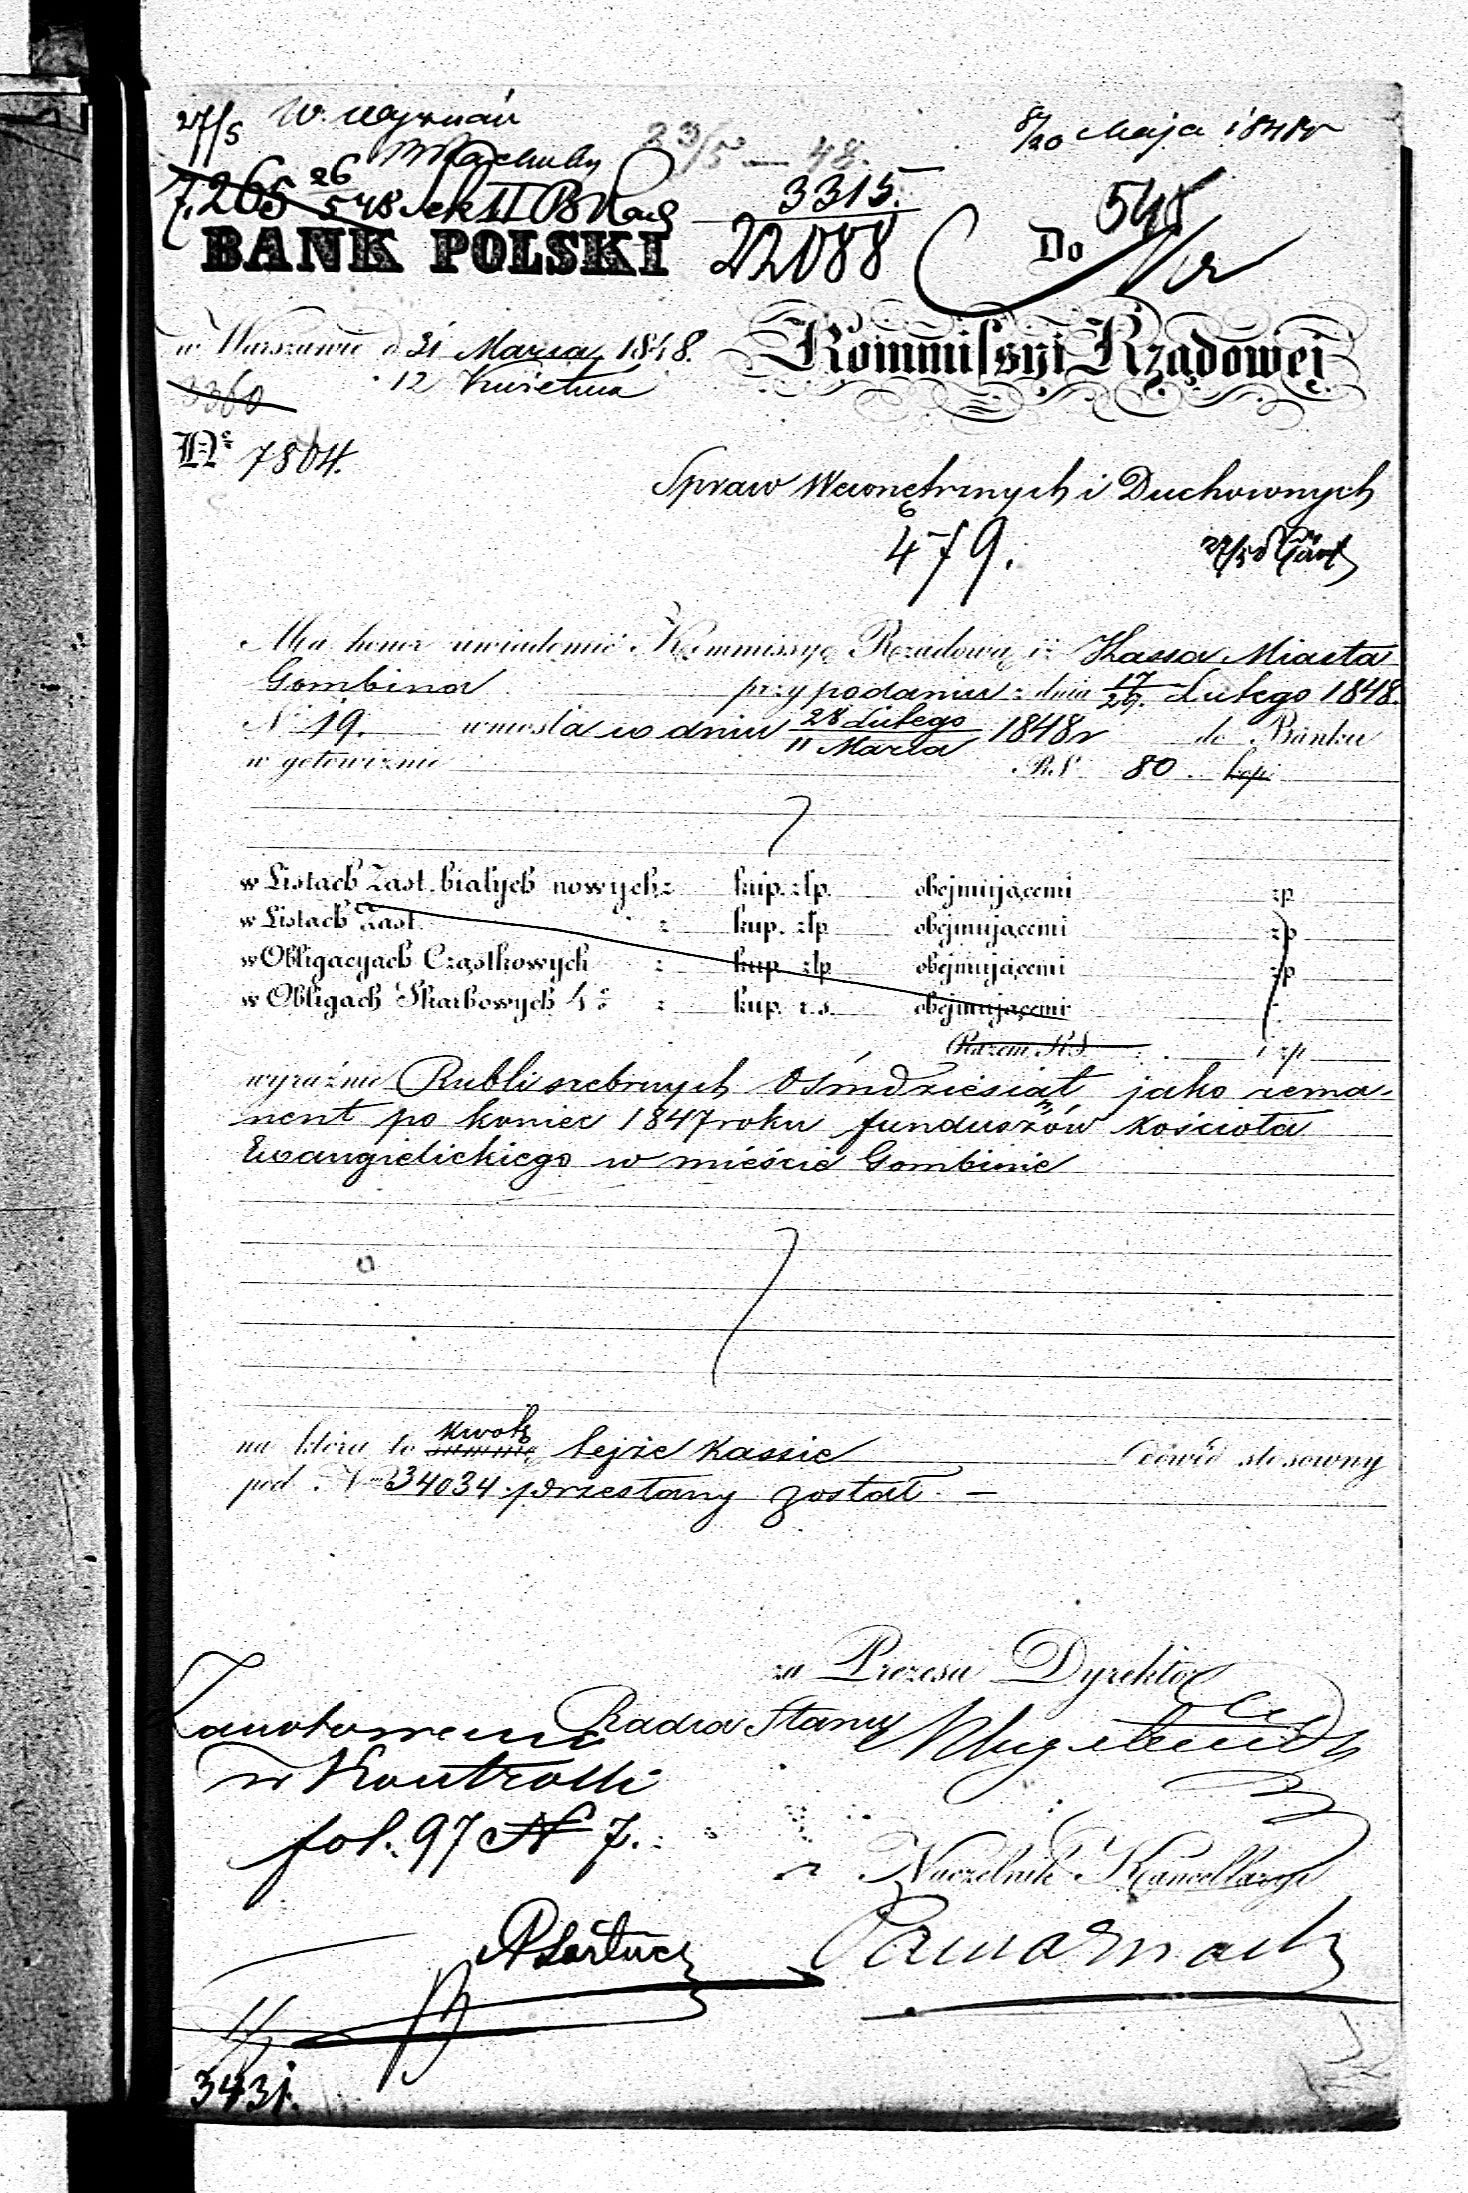 27/5 W. Wyznań 8/20 Maja 1848r
B Rachuby 23/5 — 48.
7.265 26/5 48 Sek II B Rach 3315. 548
BANK POLSKI 22088 Do
w Warszawie d 31 Marca 1848. Kommissyi Rządowej
12 Kwietnia
3360
Nr 7804.
Spraw Wewnętrznych i Duchownych
6
479.
Ma honor uwiadomić Kommissyę Rządową iż Kassa Miasta
Gombina przy podaniu z dnia 17/29. Lutego 1848.
Nr 19. wniosła w dniu 28 Lutego / 11 Marca 1848r do Banku
w gotowiźnie R.S. 80. kop.
w Listach Zast. białych nowych z kup. złp. obejmującemi zp
w Listach Zast. z kup. złp obejmującemi zp
w Obligacyach Cząstkowych z kup. złp obejmującemi zp
w Obligach Skarbowych 4% z kup. r.s. obejmującemi
Razem R.S. i zp
wyraźnie Rubli srebrnych Ośmdziesiąt jako rema-
nent po koniec 1847 roku funduszów kościoła
Ewangielickiego w mieście Gombinie
na którą to summę kwotę tejże Kassie dowód stosowny
pod Nrem 34034 przesłany został. —
za Prezesa Dyrektor
Radca Stanu
Zanotowano
w Kontrolli
fol. 97 N 7.
Naczelnik Kancellaryi
3431.